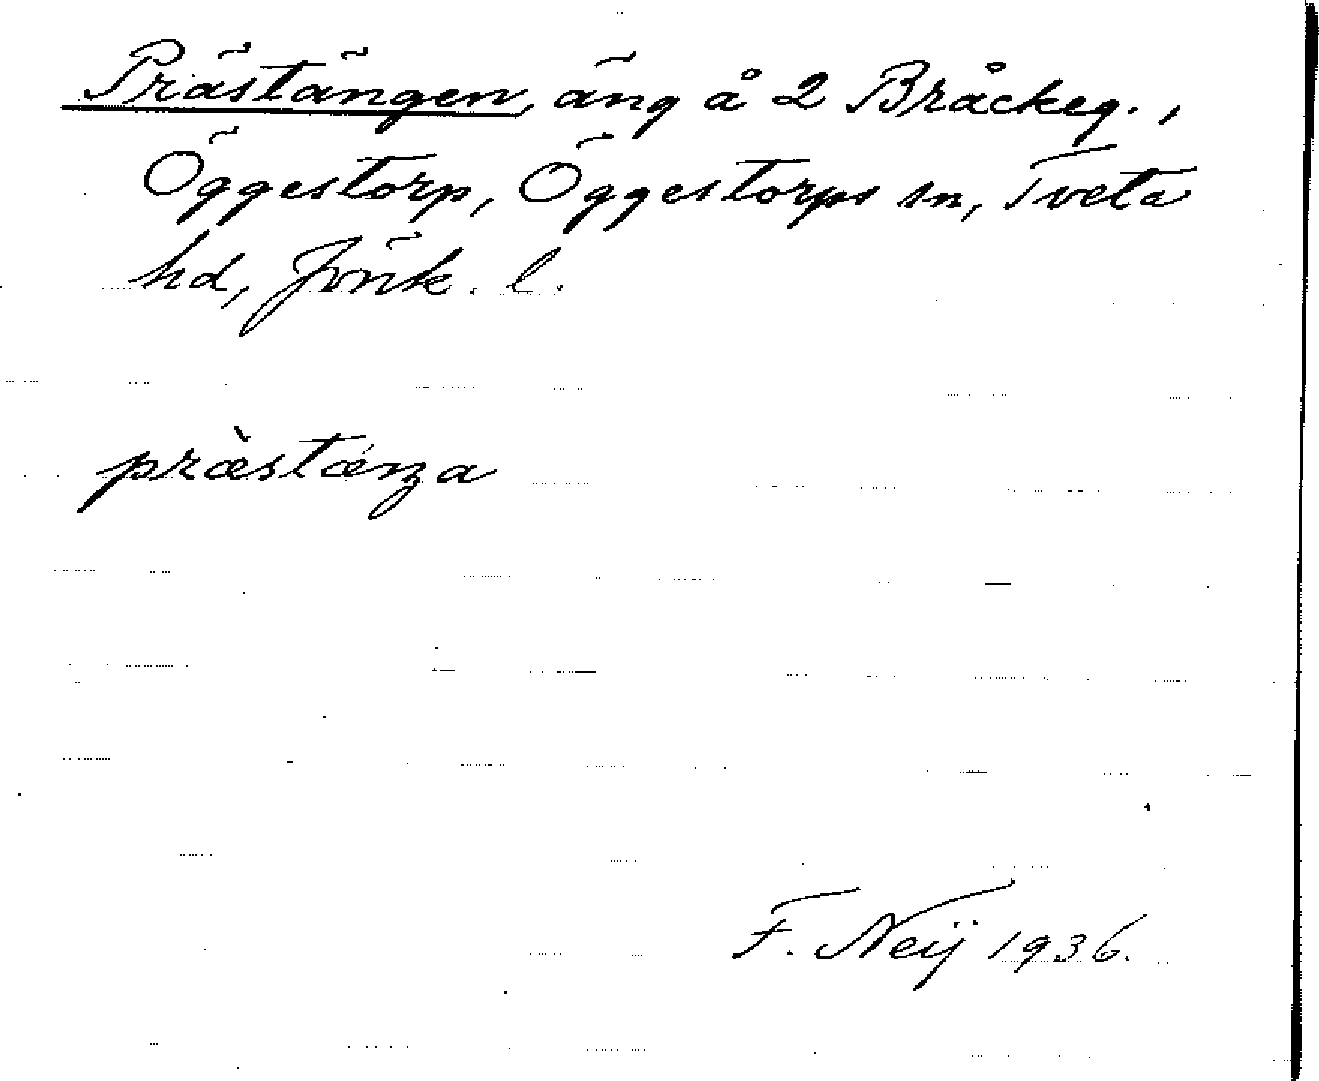 Prästängen, äng å 2 Bråckeg.,
Öggestorp, Öggestorps sn, Tveta
hd, Jönk. l.
præ̀stǽnʒa
F. Neij 1936.